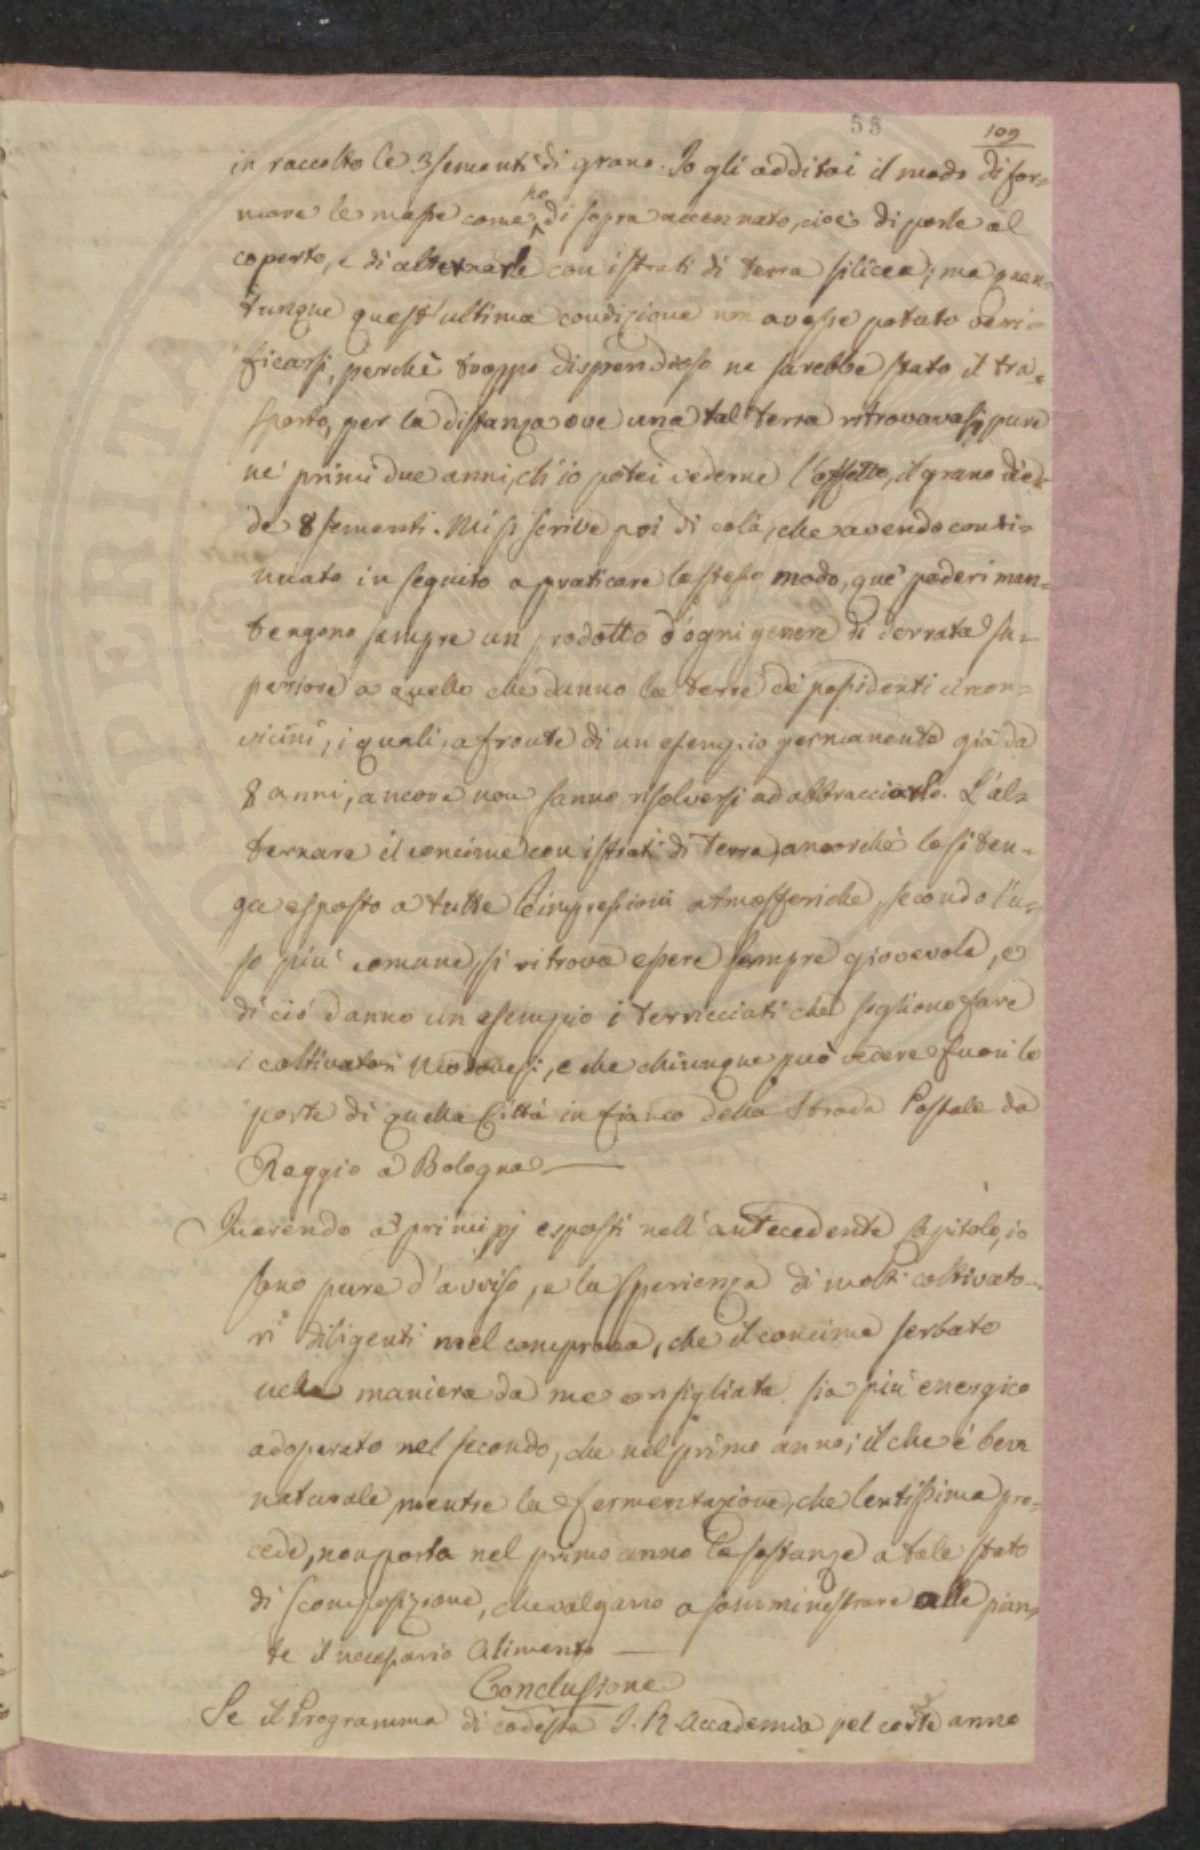 55 109
in raccolto le 3 sementi di grano. Io gli additai il modo di for=
mare le masse come ho di sopra accennato, cioè di porle al
coperto, e di alternarle con istrati di terra silicea; ma quan=
tunque quest'ultima condizione non avesse potuto veri=
ficarsi, perchè troppo dispendioso ne sarebbe stato il tra=
sporto, per la distanza ove una tal terra ritrovavasi, pure
ne' primi due anni, ch'io potei vederne l'effetto, il grano die=
de 8 sementi. Mi si scrive poi di colà, che avendo conti=
nuato in seguito a praticare lo stesso modo, que' poderi man=
tengono sempre un prodotto d'ogni genere di derrata su=
periore a quello che danno le terre de' possidenti circon=
vicini, i quali, a fronte di un esempio permanente già da
8 anni, ancora non sanno risolversi ad abbracciarlo. L'al=
ternare il concime con istrati di terra, ancorchè lo si ten=
ga esposto a tutte le impressioni atmosferiche, secondo l'u=
so più comune, si ritrova essere sempre giovevole, e
di ciò danno un esempio i terricciati che sogliono fare
i coltivatori Modonesi, e che chiunque può vedere fuori le
porte di quella Città in fianco della Strada Postale da
Reggio a Bologna —
Inerendo a' principj esposti nell'antecedente Capitolo, io
sono pure d'avviso, e la sperienza di molti coltivato=
ri diligenti mel comprova, che il concime serbato
nella maniera da me consigliata sia più energico
adoperato nel secondo, che nel primo anno; il che è ben
naturale, mentre la fermentazione, che lentissima pro=
cede, non porta nel primo anno le sostanze a tale stato
di scomposizione, che valgano a somministrare alle pian=
te il necessario alimento —
Conclusione
Se il Programma di codesta I. R. Accademia pel corr.te anno